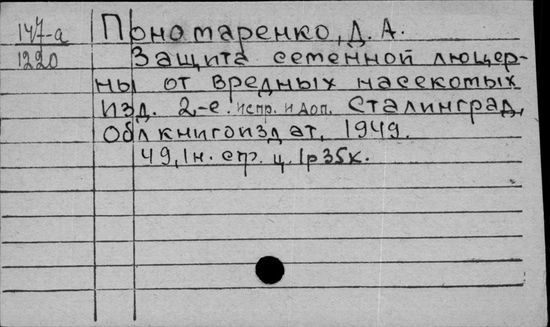 147-а Пономаренко, Д. А.
1220 Защита семенной люцер-
ны от вредных насекомых
Изд. 2-е. испр. и доп. Сталинград,
Облкнигоиздат, 1949.
49, 1н. стр. ц. 1р35к.